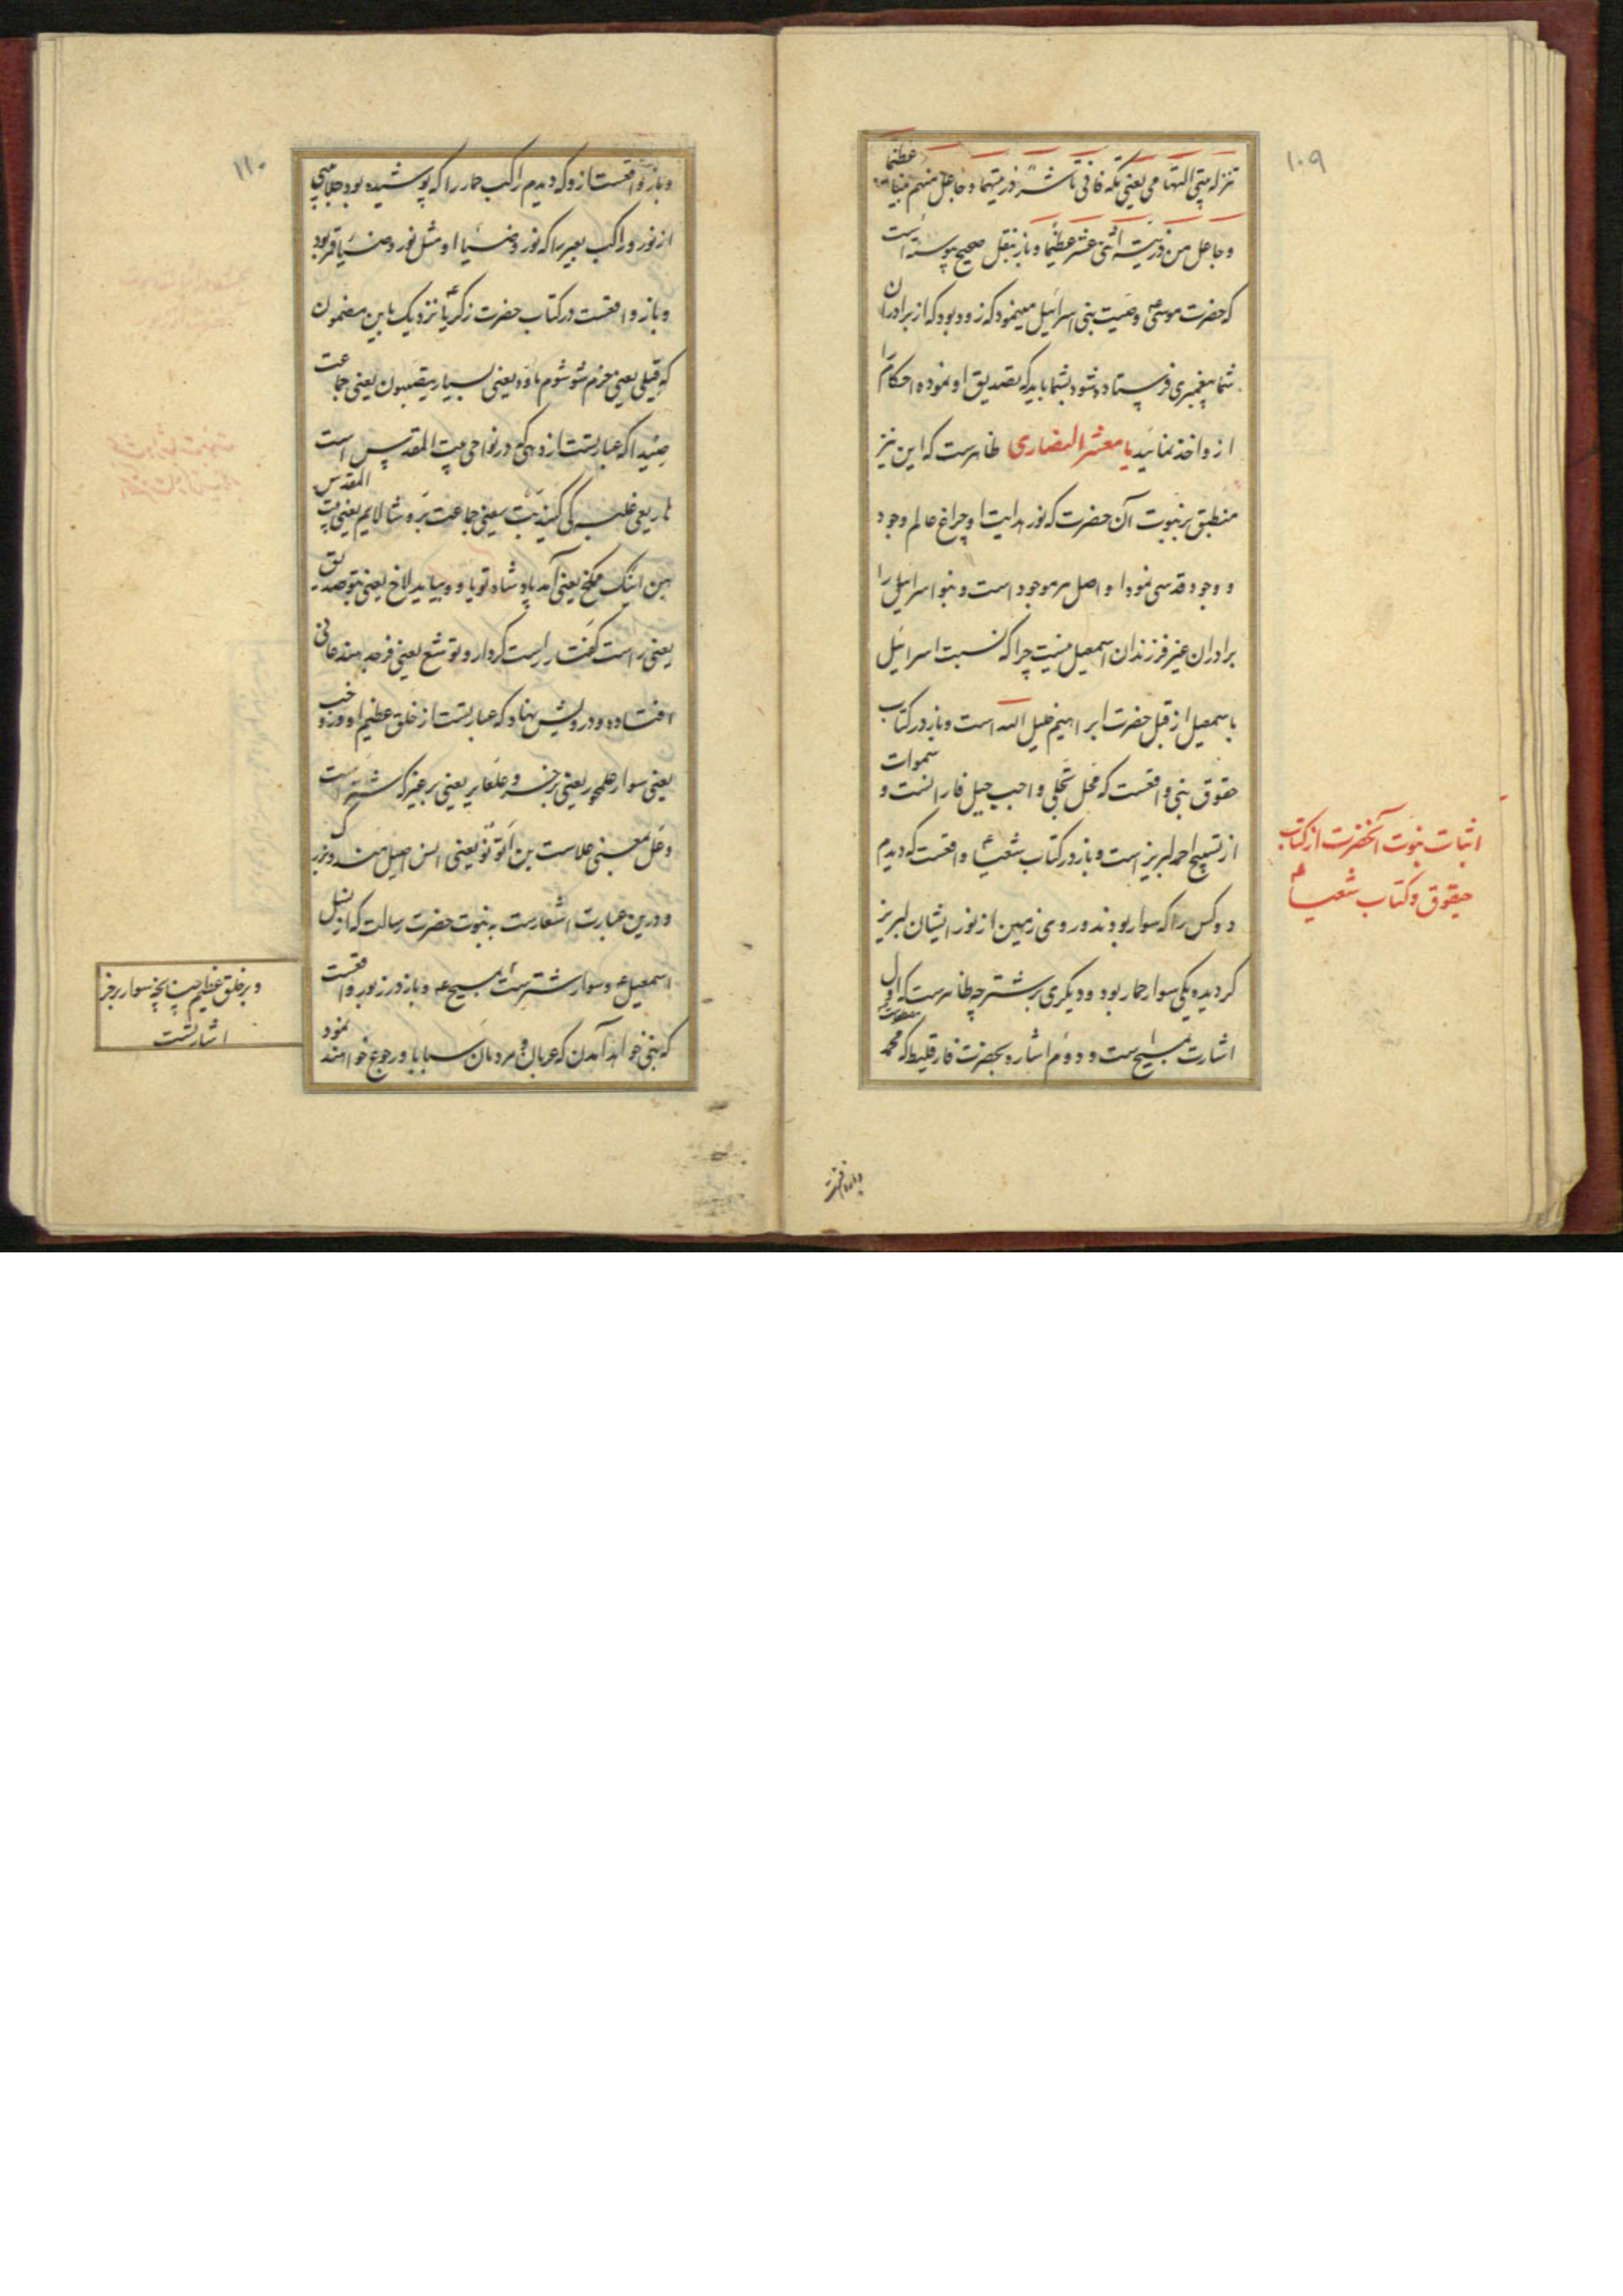 ۱۰۹
وجاعل من ذریته اثنی عشر عظیما وباز بنقل صحیح پیوسته است
که حضرت موسی وصیت بنی اسرائیل مینمود که زود بود که از برادران
شما پیغمبری فرستاده شود بشما باید که تصدیق او نموده احکام را
ازو اخذ نمائید یا معشر النصاری ظاهرست که این نیز
منطبق بر نبوت آن حضرت که نور هدایت او چراغ عالم وجود
و وجود قدسی نمود او اصل هر موجود است و بنو اسرائیل را
برادران غیر فرزندان اسمعیل نیست چرا که نسبت اسرائیل
باسمعیل از قبل حضرت ابراهیم خلیل الله است و باز در کتاب
حقوق نبی واقعست که محل تجلی واجب جبل فارانست و سموات
از تسبیح احمد لبریز است و باز در کتاب شعیا واقعست که دیدم
دو کس را که سوار بودند و روی زمین از نور ایشان لبریز
گردیده یکی سوار حمار بود و دیگری بر شتر چه ظاهرست که اول
اشارت بمسیح است و دوم اشاره بحضرت فارقلیط که محمد
اثبات نبوت آنحضرت از کتاب
حیقوق و کتاب شعیا
۱۱۰
و باز واقعست ازو که دیدم راکب حمار را که پوشیده بود جلابیبی
از نور و راکب بعیر را که نور و ضیاء او مثل نور و ضیاء قمر بود
و باز واقعست در کتاب حضرت زکریا نزدیک باین مضمون
که قیلی یعنی مغرم شو شوم باود یعنی بسیار یعنی جماعت
که عبارتست از دهی که در نواحی بیت المقدس است
یعنی جماعت یعنی بیت المقدس
یعنی آمد پادشاه تو یعنی بتو صدیق
یعنی راست گفتار راست کردار و توشع یعنی فرحمند عانی
افتاده و درویش نهاد که عبارتست از خلق عظیم او وزو خب
یعنی سوار علحمور یعنی بر خر و علعایر یعنی بر عیر که شتر است
و درین عبارت اشعارست به نبوت حضرت رسالت که از نسل
اسمعیل و سوار شترست بمسیح و باز در زبور واقعست
که نبی خواهد آمدن که عربان و مردمان سبا باو رجوع خواهند نمود
و بر خلق عظیم چنانچه سوار بر خر
اشارتست